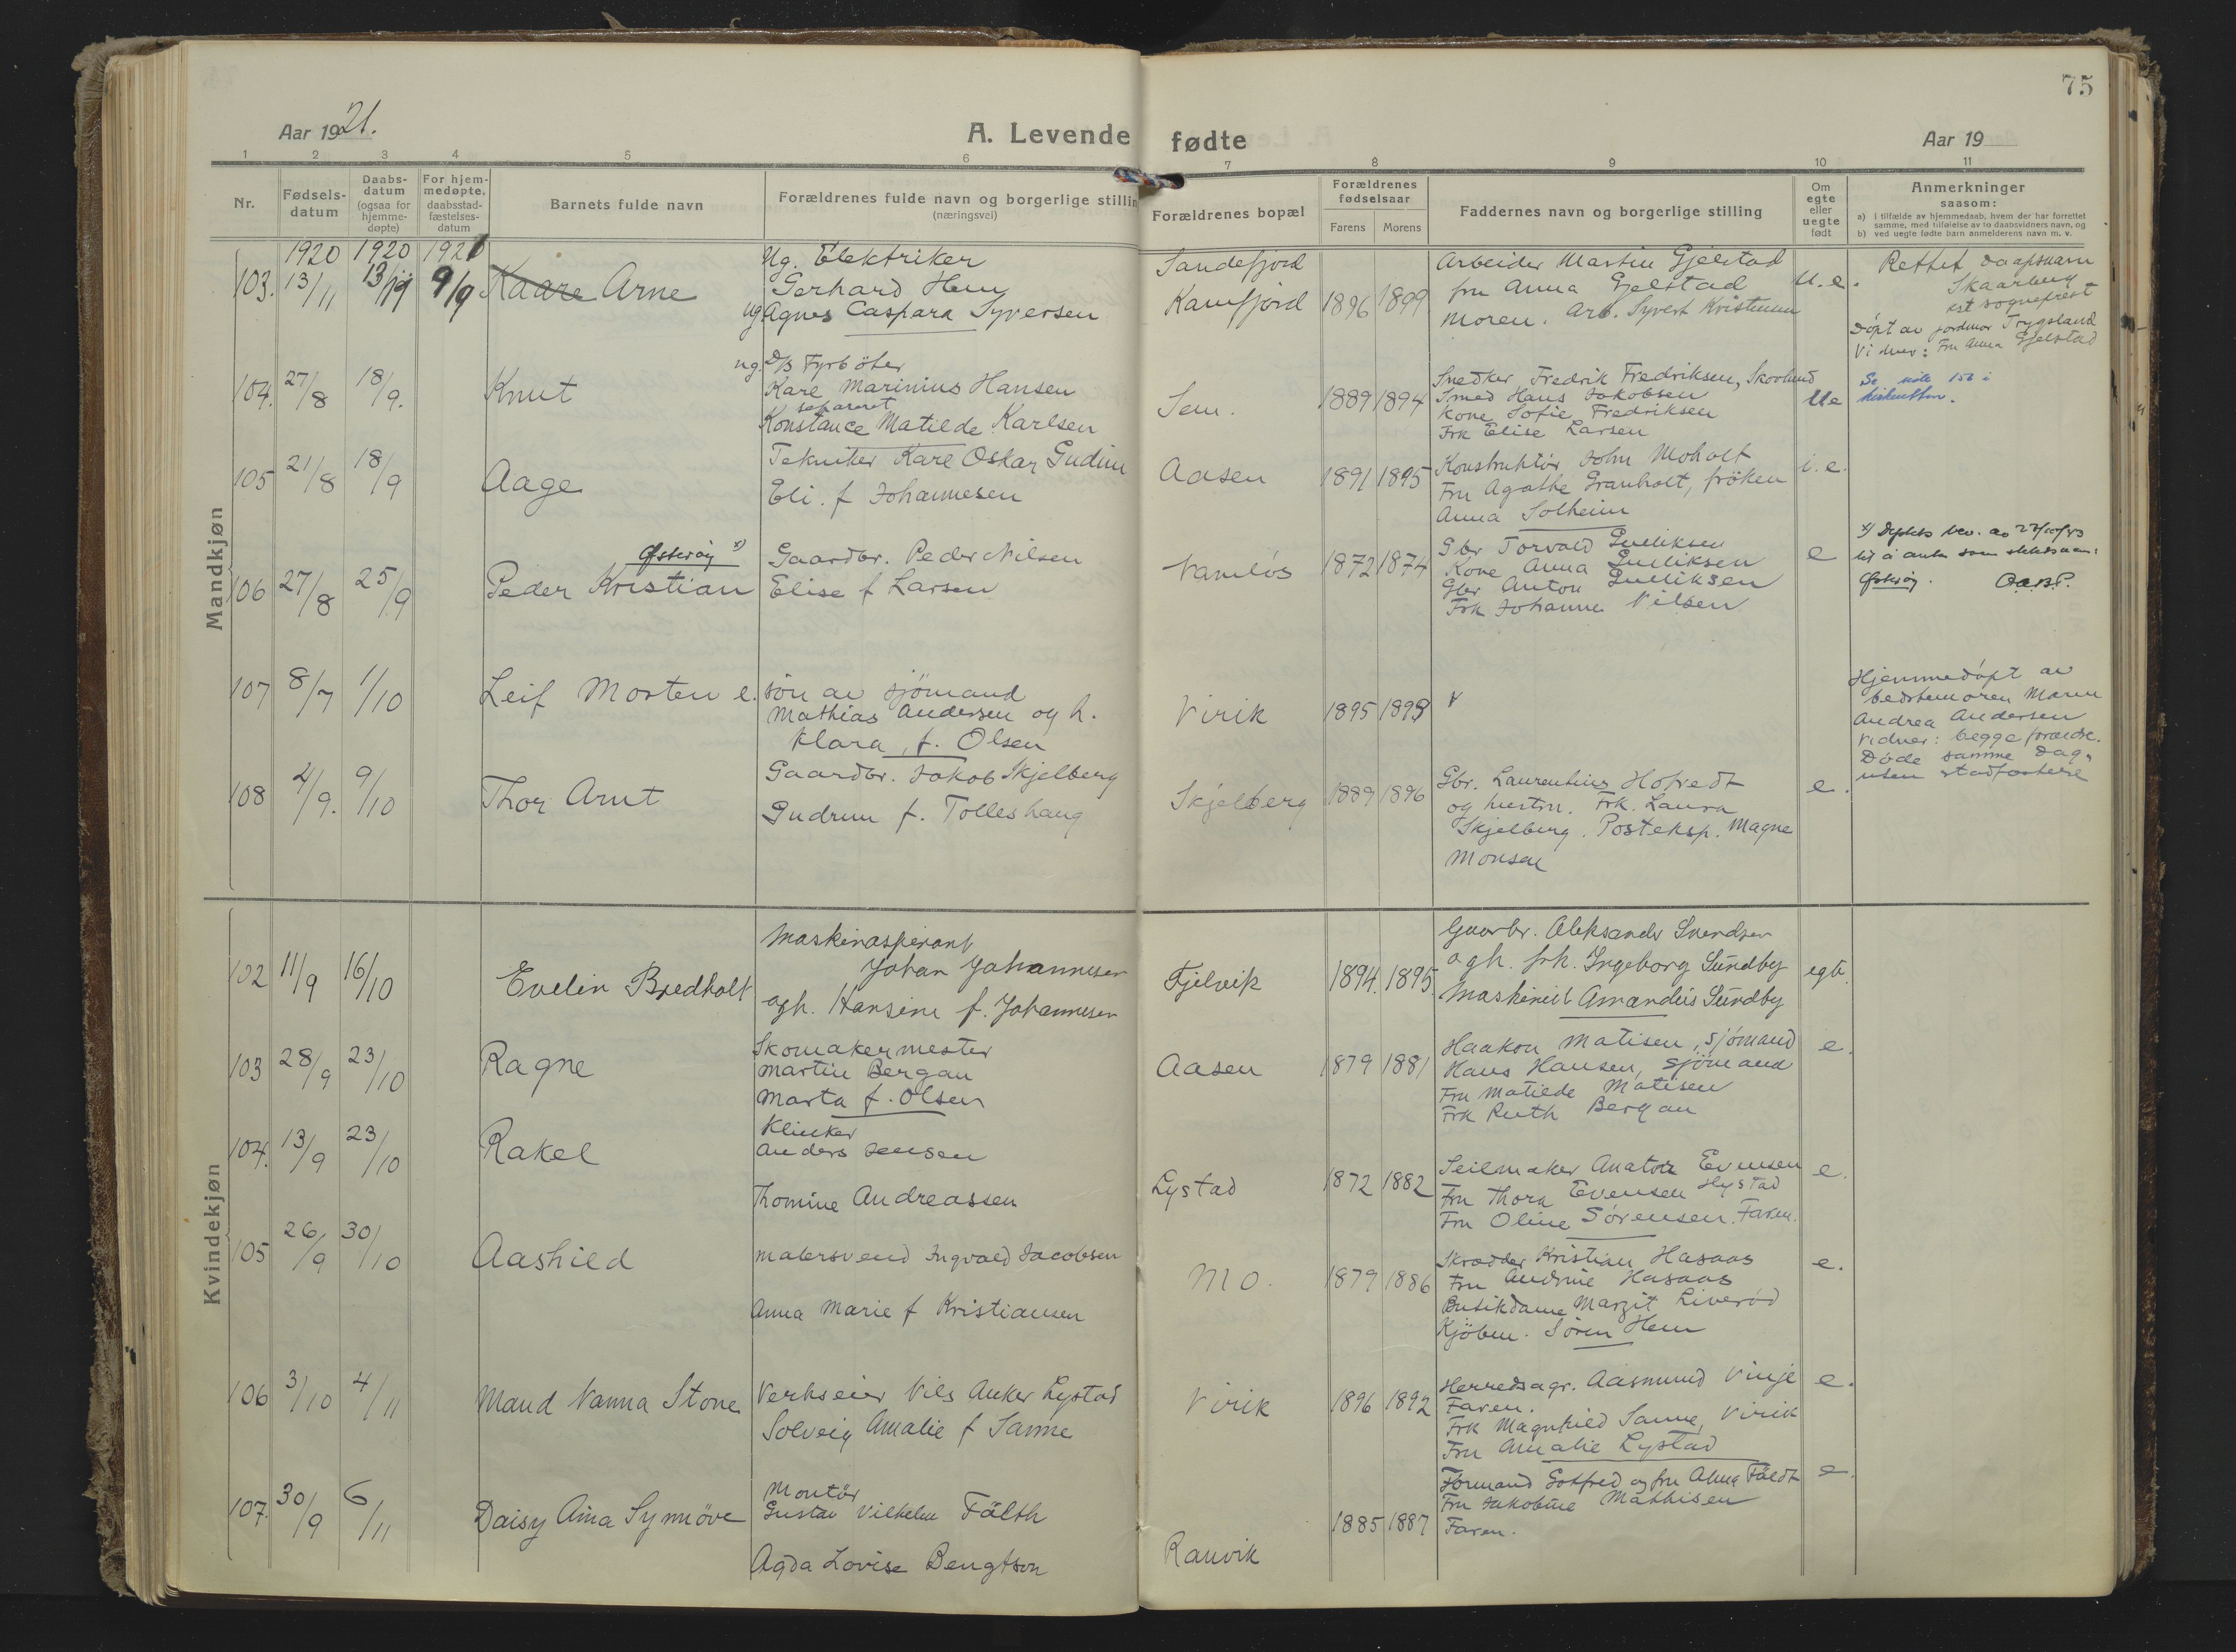 75
Aar 1921.
A. Levende fødte
Aar 19
1 2 3 4 5 6 7 8 9 10 11
Nr.
Fødsels-
datum
Daabs-
datum
(ogsaa for
hjemme-
døpte)
For hjem-
medøpte,
daabsstad-
fæstelses-
datum
Barnets fulde navn
Forældrenes fulde navn og borgerlige stillin
(næringsvei)
Forældrenes bopæl
Forældrenes
fødselsaar
Farens Morens
Faddernes navn og borgerlige stilling
Om
egte
eller
uegte
født
Anmerkninger
saasom:
a) i tilfælde av hjemmedaab, hvem der har forrettet
samme, med tilføielse av to daabsvidners navn, og
b) ved uegte fødte barn anmelderens navn m. v.
Mandkjøn
1920 1920 1921
103. 13/11 9/9
Kaare Arne
Ug. Elektriker
Gerhard Hem
ug. Agnes Caspara Syversen
Sandefjord
Kamfjord
1896 1899
Arbeider Martin Gjelstad
fru Anna Gjelstad
Moren. Arb. Syvert Kristensen
U. e.
Rettet daapsnavn
Skaarberg
sogneprest
Døpt av jordmor Trygsland
Vidner: Fru Anna Gjelstad
104. 27/8 18/9.
Knut
ug. D/B Fyrböter
Karl Marinius Hansen
separert
Konstance Matilde Karlsen
Sem.
1889 1894
Snedker Fredrik Fredriksen,
Smed Hans Jakobsen
Kone Sofie Fredriksen
Frk Elise Larsen
Ue
Se side 156 i
105 21/8 18/9
Aage
Tekniker Karl Oskar Gudim
Eli. f Johannesen
Aasen
1891 1895
Konstruktör John Moholt
Fru Agathe Granholt, fröken
Anna Solheim
i. e.
106 27/8 25/9
Østerøy x)
Peder Kristian
Gaardbr. Peder Nilsen
Elise f Larsen
Namløs
1872 1874
Gbr Torvald Gulliksen
Kone Anna Gulliksen
Gbr Anton Gulliksen
Frk Johanne Nilsen
e
x) Deptets bev. av
til å anta som slektsnavn:
Østerøy.
107 8/7 1/10
Leif Morten e.
sön av sjömand
Mathias Andersen og h.
Klara, f. Olsen
Virik
1895 1898
Hjemmedöpt av
bedstemoren Maren
Andrea Andersen
Vidner: begge forældre.
Døde samme Dag,
uten stadfæstelse
108 4/9. 9/10
Thor Arnt
Gaardbr. Jakob Skjelberg
Gudrun f. Tolleshaug
Skjelberg
1889 1896
Gbr. Laurentius Hofredt
og hustru. Frk. Laura
Skjelberg. Posteksp. Magne
Monsen
e.
Kvindekjøn
102 11/9 16/10
Evelin Bredholt
Maskinaspirant
Johan Johannesen
ogh. Hansine f. Johannesen
Fjelvik
1894. 1895.
Gaarbr. Aleksander Svendsen
ogh. frk. Ingeborg Sundby
Maskinist Amandus Sundby
egte.
103 28/9 23/10
Ragne
Skomakermester
Martin Bergan
Marta f. Olsen
Aasen
1879 1881
Haakon Matisen, sjømand
Hans Hansen, sjömand
Fru Matilde Matisen
Frk Ruth Bergan
e.
104. 13/9 23/10
Rakel
Klinker
Anders Jensen
Thomine Andreassen
Lystad
1872 1882
Seilmaker Anaton Evensen
Fru Thora Evensen Hystad
Fru Oline Sörensen. Faren.
e.
105 26/9 30/10
Aashild
Malersvend Ingvald Jacobsen
Anna Marie f Kristiansen
Mo.
1879 1886
Skrædder Kristian Hasaas
Fru Andrine Hasaas
Butikdame Margit Liveröd
Kjöbm. Sören Hem
e.
106 3/10 4/11
Maud Nanna Stone
Verkseier Nils Anker Lystad
Solveig Amalie f Sanne
Virik
1896 1892
Herredsagr. Aasmund Vinje
Faren.
Frk Magnhild Sanne, Virik
Fru Amalie Lystad
e.
107. 30/9 6/11
Daisy Aina Synnöve
Montör
Gustav Vilhelm Fälth
Agda Lovise Bengtson
Ranvik
1885 1887
Formand Gotfred og fru Alma Fäldt
Fru Jakobine Mathisen
Faren.
e.